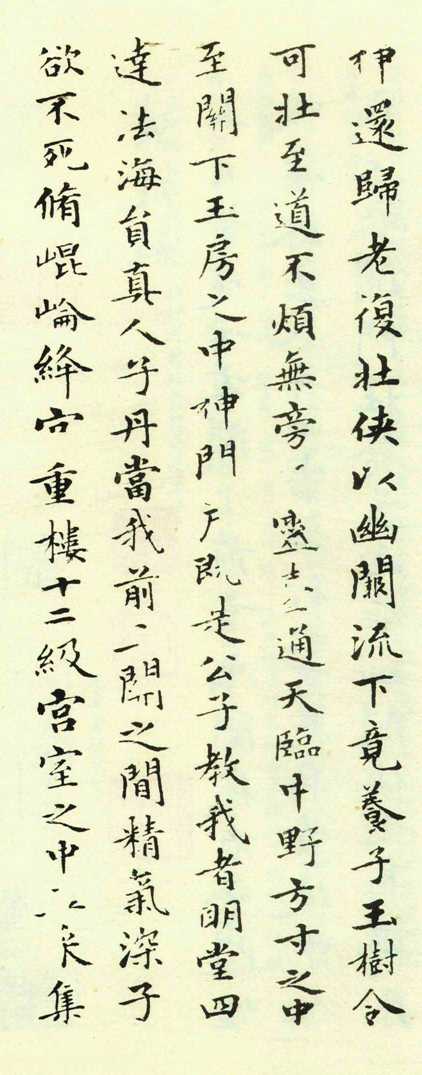 神還歸老復壯俠以幽闕流下竟養子玉樹令
可壯至道不煩無旁靈臺通天臨中野方寸之中
至關下玉房之中神門戶既是公子教我者明堂四
達法海員真人子丹當我前二關之間精氣深子
欲不死脩崐崘絳宮重樓十二級宮室之中集